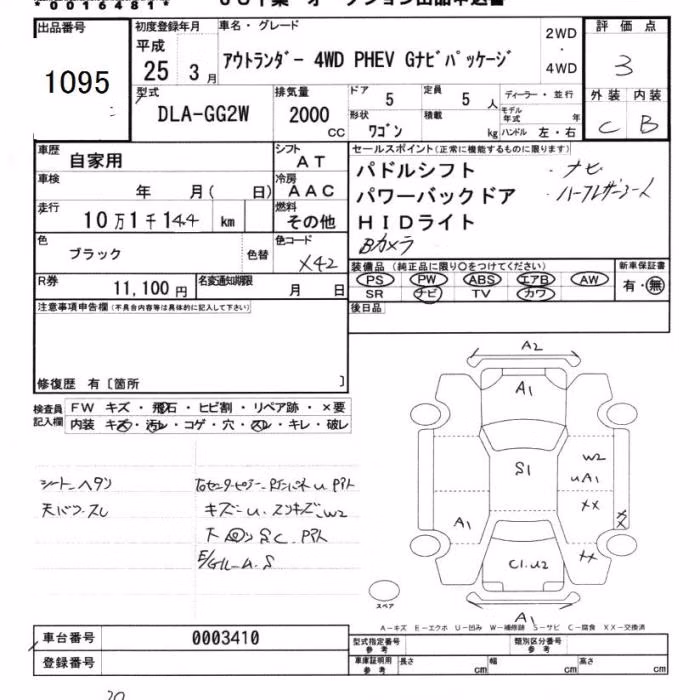 *00164814*
出品番号
1095
初度登録年月
平成
25 3月
車名・グレード
アウトランダー 4WD PHEV Gナビパッケージ
2WD
・
4WD
評価点
3
型式
DLA-GG2W
排気量
2000
CC
ドア
5
定員
5人
ディーラー・並行
モデル年式 年
形状
ワゴン
積載
kg
ハンドル 左・右
外装 内装
C B
車歴
自家用
シフト
AT
車検
年 月( 日)
冷房
AAC
走行
10万1千144 km
燃料
その他
色
ブラック
色替
色コード
X42
R券
11,100円
名変通知期限
月 日
セールスポイント(正常に機能するものに限ります)
パドルシフト ・ナビ
パワーバックドア ・ハーフレザーシート
HIDライト
Bカメラ
装備品(純正品に限り○をつけてください)
PS PW ABS エアB AW
SR ナビ TV カワ
新車保証書
有・無
後日品
注意事項申告欄(不具合内容等は具体的に記入して下さい)
修復歴 有〔箇所 〕
検査員記入欄
FW キズ・飛石・ヒビ割・リペア跡・×要
内装 キズ・汚レ・コゲ・穴・スレ・キレ・破レ
シートヘタリ
天バリスレ
キズ-U.スリキズ.W2
下回りS C.
A2
A1
S1
W2
uA1
XX
A1
XX
C1.U2
A1
スペア
A-キズ E-エクボ U-凹み W-補修跡 S-サビ C-腐食 XX-交換済
車台番号
0003410
登録番号
型式指定番号
参考
類別区分番号
参考
車庫証明用
参考
長さ cm
幅 cm
高さ cm